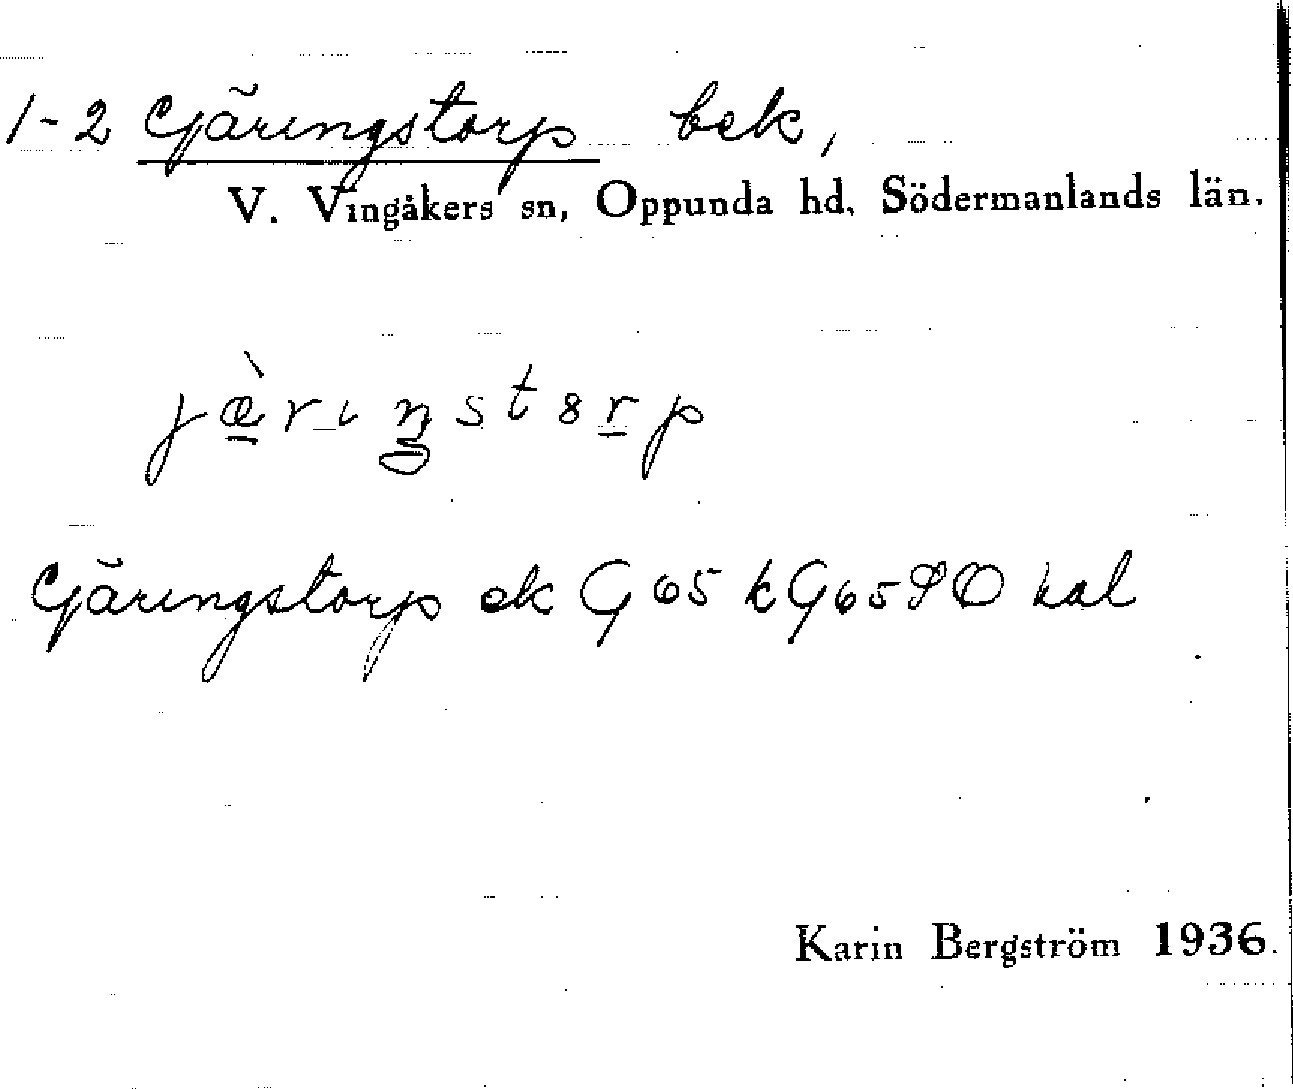 1-2 Gjäringstorp bek,
V. Vingåkers sn, Oppunda hd, Södermanlands län.
Gjäringstorp ek G 65 kG65
Karin Bergström 1936.